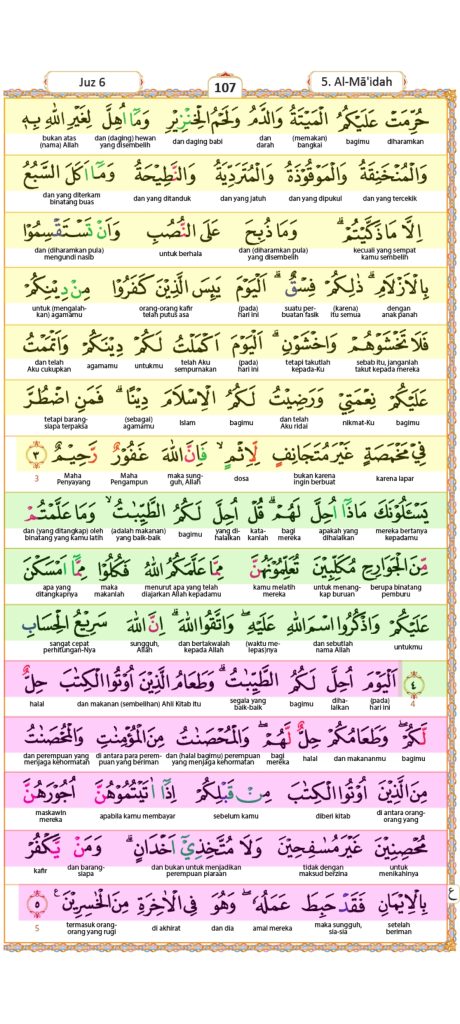 Juz 6
107
5. Al-Mā'idah
حُرِّمَتْ عَلَيْكُمُ الْمَيْتَةُ وَالدَّمُ وَلَحْمُ الْخِنْزِيْرِ وَمَآ اُهِلَّ لِغَيْرِ اللّٰهِ بِهٖ
bukan atas dan (daging) hewan dan daging babi dan (memakan) bagimu diharamkan
(nama) Allah yang disembelih darah bangkai
وَالْمُنْخَنِقَةُ وَالْمَوْقُوْذَةُ وَالْمُتَرَدِّيَةُ وَالنَّطِيْحَةُ وَمَآ اَكَلَ السَّبُعُ
dan yang diterkam dan yang ditanduk dan yang jatuh dan yang dipukul dan yang tercekik
binatang buas
اِلَّا مَا ذَكَّيْتُمْۗ وَمَا ذُبِحَ عَلَى النُّصُبِ وَاَنْ تَسْتَقْسِمُوْا
dan (diharamkan pula) untuk berhala dan (diharamkan pula) kecuali yang sempat
mengundi nasib yang disembelih kamu sembelih
بِالْاَزْلَامِۗ ذٰلِكُمْ فِسْقٌۗ اَلْيَوْمَ يَىِٕسَ الَّذِيْنَ كَفَرُوْا مِنْ دِيْنِكُمْ
untuk (mengalah- orang-orang kafir (pada) suatu per- (karena) dengan
kan) agamamu telah putus asa hari ini buatan fasik itu semua anak panah
فَلَا تَخْشَوْهُمْ وَاخْشَوْنِۗ اَلْيَوْمَ اَكْمَلْتُ لَكُمْ دِيْنَكُمْ وَاَتْمَمْتُ
dan telah agamamu untukmu telah Aku (pada) tetapi takutlah sebab itu, janganlah
Aku cukupkan sempurnakan hari ini kepada-Ku takut kepada mereka
عَلَيْكُمْ نِعْمَتِيْ وَرَضِيْتُ لَكُمُ الْاِسْلَامَ دِيْنًاۗ فَمَنِ اضْطُرَّ
tetapi barang- (sebagai) Islam bagimu dan telah nikmat-Ku bagimu
siapa terpaksa agamamu Aku ridai
فِيْ مَخْمَصَةٍ غَيْرَ مُتَجَانِفٍ لِّاِثْمٍۙ فَاِنَّ اللّٰهَ غَفُوْرٌ رَّحِيْمٌ ٣
3 Maha Maha maka sung- dosa bukan karena karena lapar
Penyayang Pengampun guh, Allah ingin berbuat
يَسْـَٔلُوْنَكَ مَاذَآ اُحِلَّ لَهُمْۗ قُلْ اُحِلَّ لَكُمُ الطَّيِّبٰتُۙ وَمَا عَلَّمْتُمْ
dan (yang ditangkap) oleh (adalah makanan) bagimu yang di- kata- bagi apakah yang mereka bertanya
binatang yang kamu latih yang baik-baik halalkan kanlah mereka dihalalkan kepadamu
مِّنَ الْجَوَارِحِ مُكَلِّبِيْنَ تُعَلِّمُوْنَهُنَّ مِمَّا عَلَّمَكُمُ اللّٰهُ فَكُلُوْا مِمَّآ اَمْسَكْنَ
apa yang maka menurut apa yang telah kamu melatih untuk menang- berupa binatang
ditangkapnya makanlah diajarkan Allah kepadamu mereka kap buruan pemburu
عَلَيْكُمْ وَاذْكُرُوا اسْمَ اللّٰهِ عَلَيْهِۖ وَاتَّقُوا اللّٰهَۗ اِنَّ اللّٰهَ سَرِيْعُ الْحِسَابِ
sangat cepat sungguh, dan bertakwalah (waktu me- dan sebutlah untukmu
perhitungan-Nya Allah kepada Allah lepas)nya nama Allah
٤ اَلْيَوْمَ اُحِلَّ لَكُمُ الطَّيِّبٰتُۗ وَطَعَامُ الَّذِيْنَ اُوْتُوا الْكِتٰبَ حِلٌّ
halal dan makanan (sembelihan) Ahli Kitab itu segala yang bagimu diha- (pada) 4
baik-baik lalkan hari ini
لَّكُمْۖ وَطَعَامُكُمْ حِلٌّ لَّهُمْۖ وَالْمُحْصَنٰتُ مِنَ الْمُؤْمِنٰتِ وَالْمُحْصَنٰتُ
dan perempuan yang di antara para perem- dan (halal bagimu) perempuan bagi halal dan makananmu bagimu
menjaga kehormatan puan yang beriman yang menjaga kehormatan mereka
مِنَ الَّذِيْنَ اُوْتُوا الْكِتٰبَ مِنْ قَبْلِكُمْ اِذَآ اٰتَيْتُمُوْهُنَّ اُجُوْرَهُنَّ
maskawin apabila kamu membayar sebelum kamu diberi kitab di antara orang-
mereka orang yang
مُحْصِنِيْنَ غَيْرَ مُسٰفِحِيْنَ وَلَا مُتَّخِذِيْٓ اَخْدَانٍۗ وَمَنْ يَّكْفُرْ
kafir dan barang- dan bukan untuk menjadikan tidak dengan untuk
siapa perempuan piaraan maksud berzina menikahinya
بِالْاِيْمَانِ فَقَدْ حَبِطَ عَمَلُهٗۖ وَهُوَ فِى الْاٰخِرَةِ مِنَ الْخٰسِرِيْنَ ࣖ ٥
5 termasuk orang- di akhirat dan dia amal mereka maka sungguh, setelah
orang yang rugi sia-sia beriman
ع